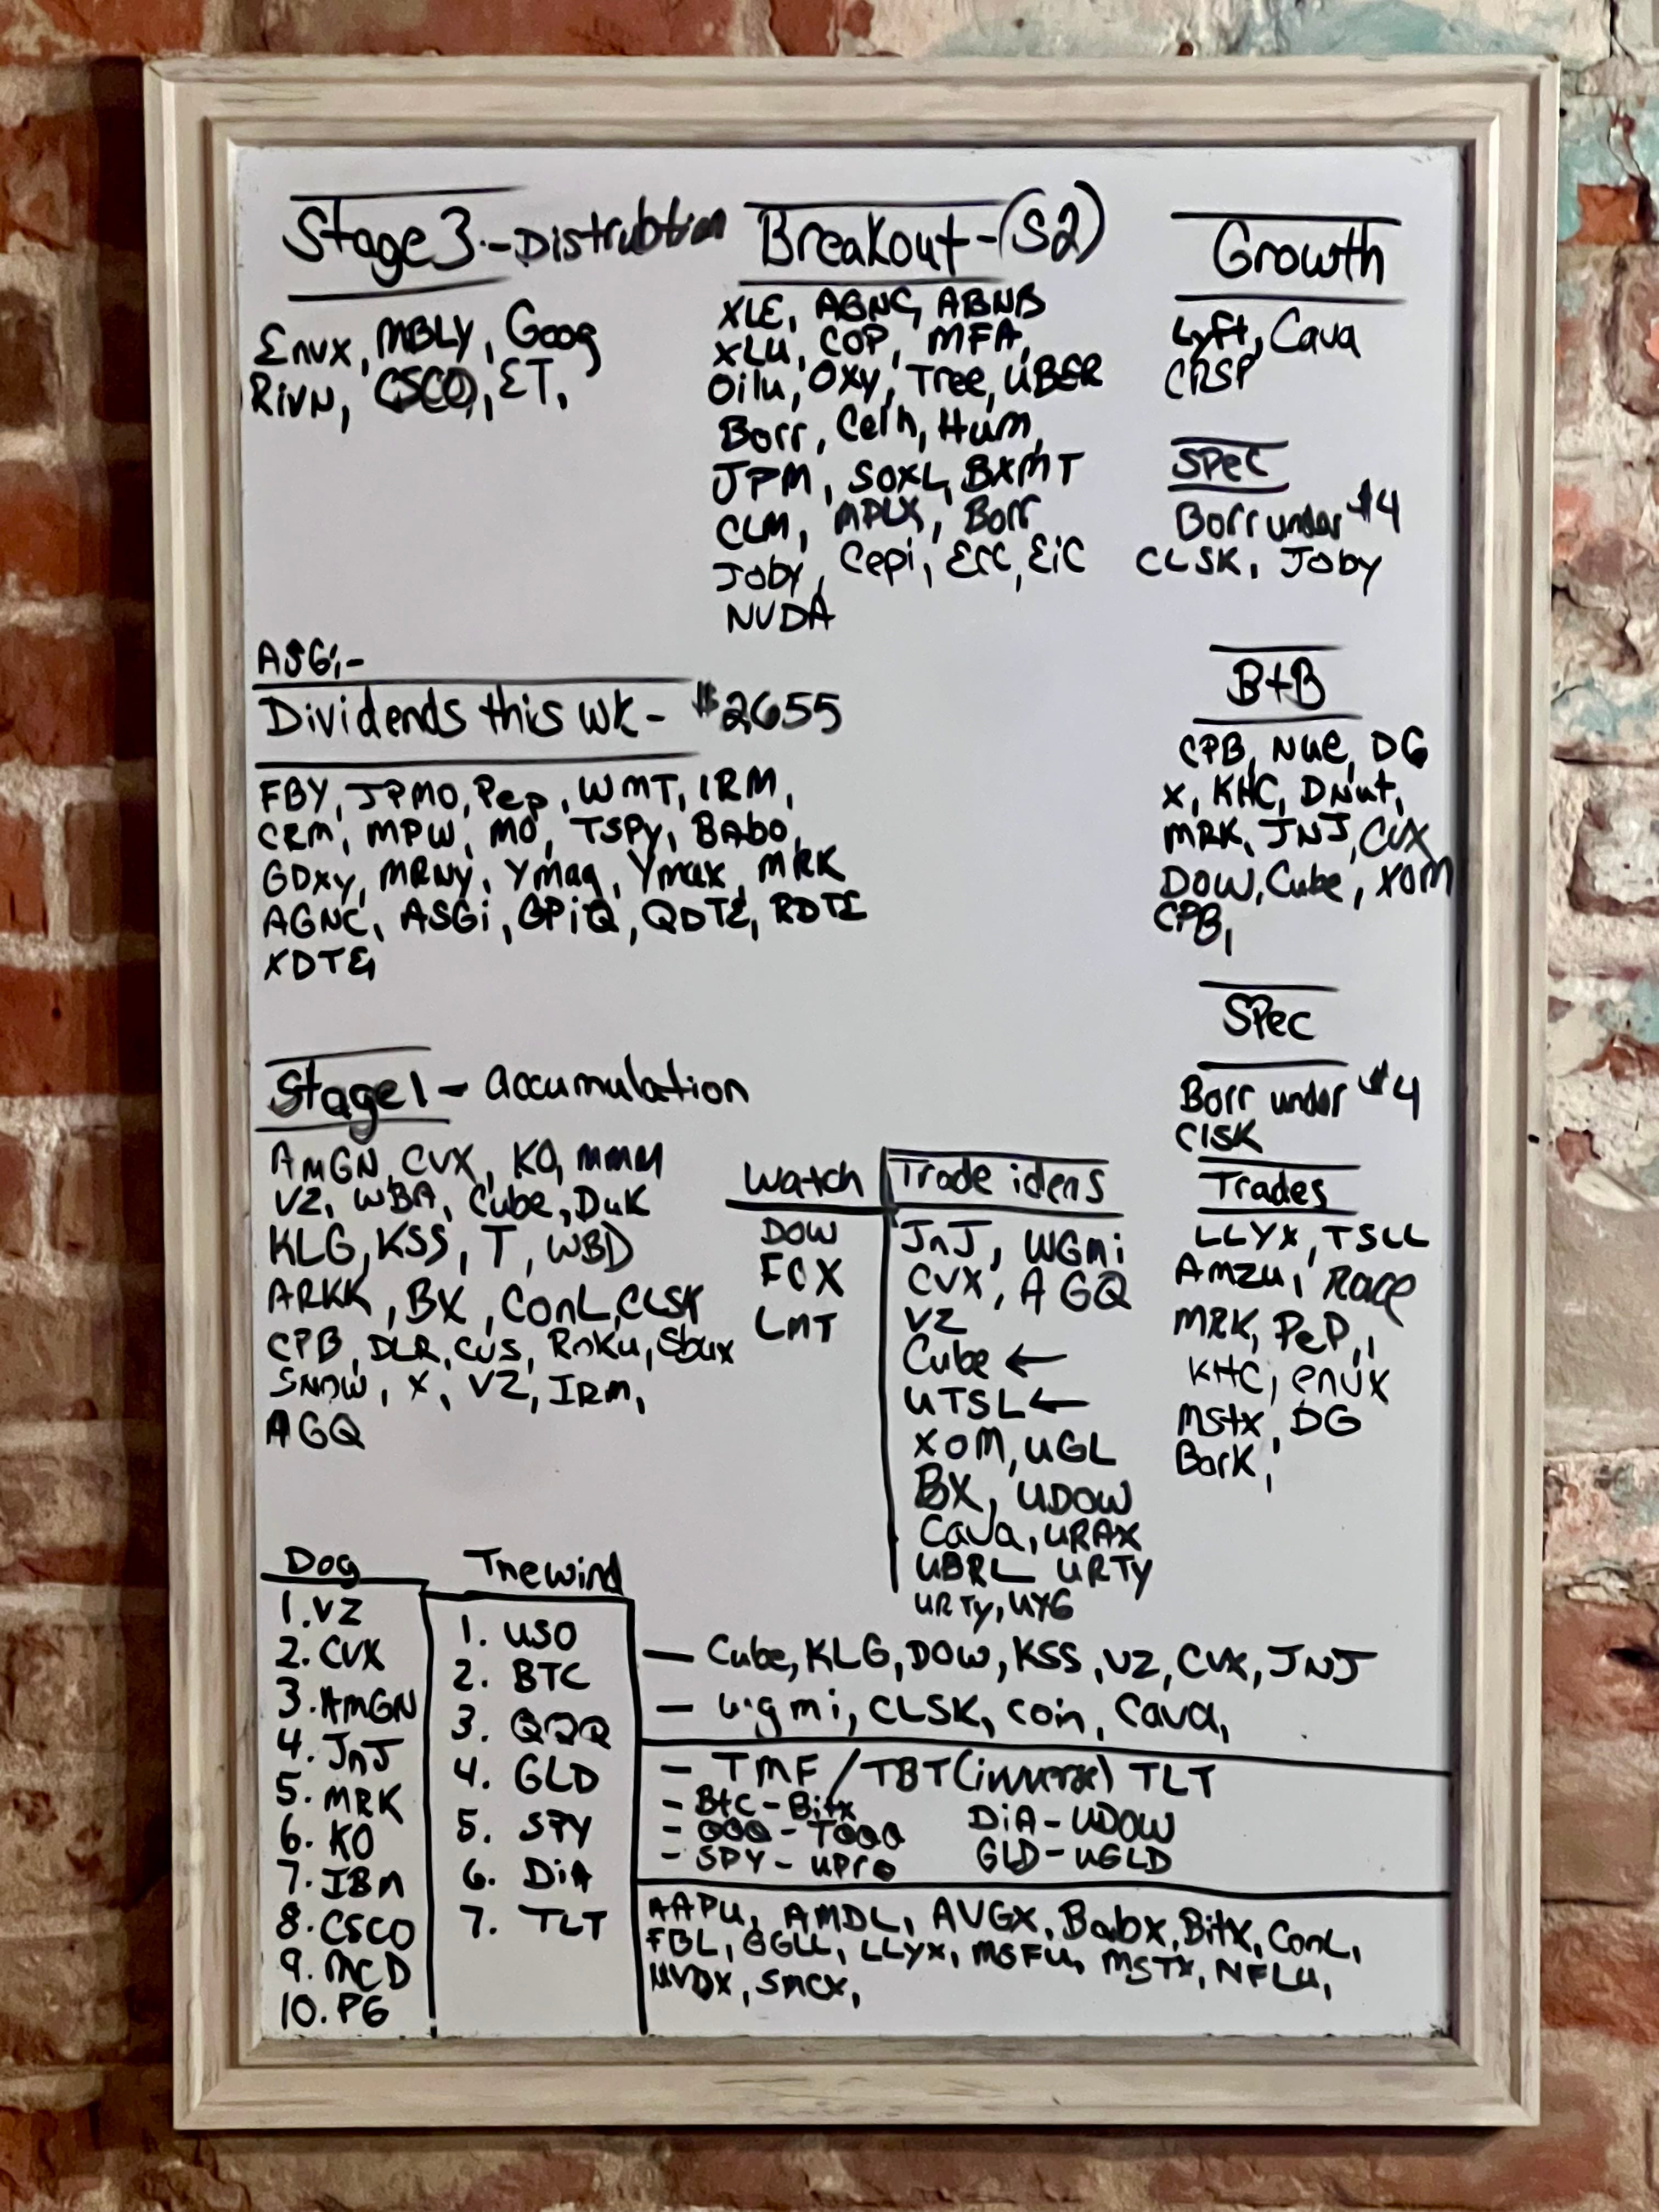 Stage 3 - Distrubtion
Envx, MBLY, Goog
Rivn, CSCO, ET,
Breakout - (S2)
XLE, AGNC, ABNB
XLU, COP, MFA,
Oilu, Oxy, Tree, UBER
Borr, Celh, Hum,
JPM, SOXL, BXMT
CLM, MPLX, Borr
Joby, Cepi, ECC, EiC
NVDA
Growth
Lyft, Cava
CRSP
Spec
Borr under $4
CLSK, Joby
ASGi-
Dividends this wk- $2655
FBY, JPMO, Pep, WMT, IRM,
CRM, MPW, MO, TSPY, BAbo,
GDXY, MRNY, Ymag, Ymax, MRK
AGNC, ASGi, GPiQ, QDTE, RDTE
XDTE,
B+B
CPB, Nue, DG
X, KHC, DNut,
MRK, JNJ, CVX
DOW, Cube, XOM
CPB,
Spec
Borr under $4
ClSK
Stage 1 - accumulation
AMGN, CVX, KO, MMM
VZ, WBA, Cube, Duk
KLG, KSS, T, WBD
ARKK, BX, ConL, CLSK
CPB, DLR, CVS, Roku, Sbux
SNOW, X, VZ, IRM,
AGQ
Watch
DOW
FCX
LMT
Trade ideas
JnJ, WGmi
CVX, AGQ
VZ
Cube ←
UTSL ←
XOM, UGL
BX, UDOW
Cava, URAX
UBRL URTY
URTY, UYG
Trades
LLYX, TSLL
Amzu, Race
MRK, PeP,,
KHC, envx
Mstx, DG
BarK,
Dog
1. VZ
2. CVX
3. AMGN
4. JnJ
5. MRK
6. KO
7. IBM
8. CSCO
9. MCD
10. PG
Thewind
1. USO
2. BTC
3. QQQ
4. GLD
5. SPY
6. DiA
7. TLT
- Cube, KLG, DOW, KSS, VZ, CVX, JNJ
- wgmi, CLSK, coin, Cava,
- TMF / TBT (inverse) TLT
- BtC - Bitx DiA - UDOW
- QQQ - TQQQ GLD - UGLD
- SPY - upro
AAPU, AMDL, AVGX, Babx, Bitx, ConL,
FBL, GGLL, LLYX, MSFU, MSTX, NFLU,
NVDX, SMCX,